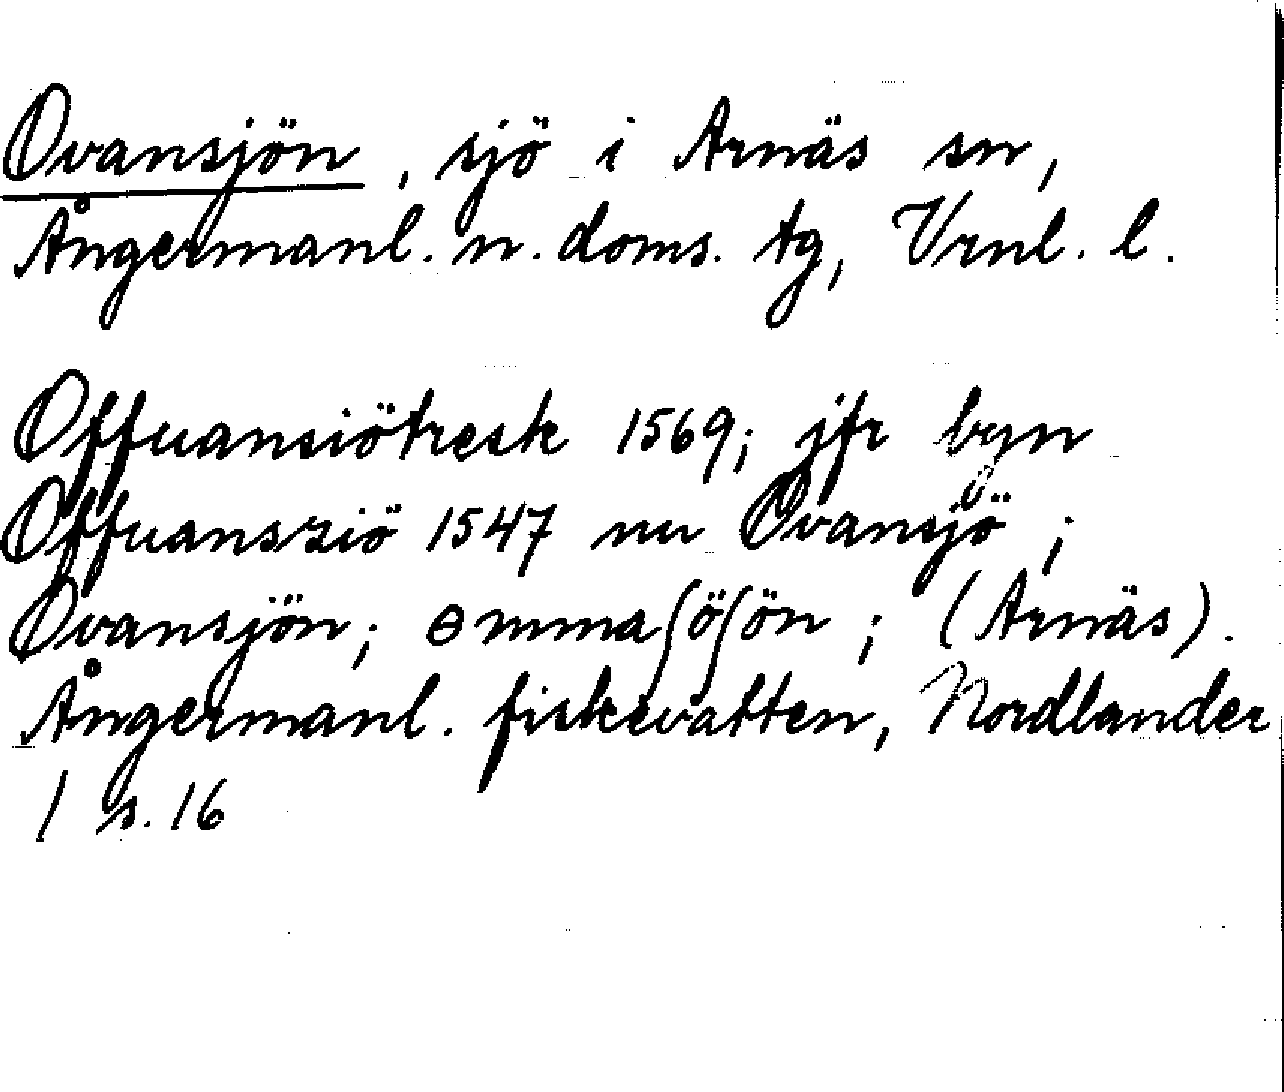 Ovansjön, sjö i Arnäs sn,
Ångermanl. n. doms. tg, Vrnl. l.
Offuansiötresk 1569; jfr byn
Offuanssiö 1547 nu Ovansjö;
Ovansjön; ɵmmaʃöʃön; (Arnäs).
Ångermanl. fiskevatten, Nordlander
1 s. 16